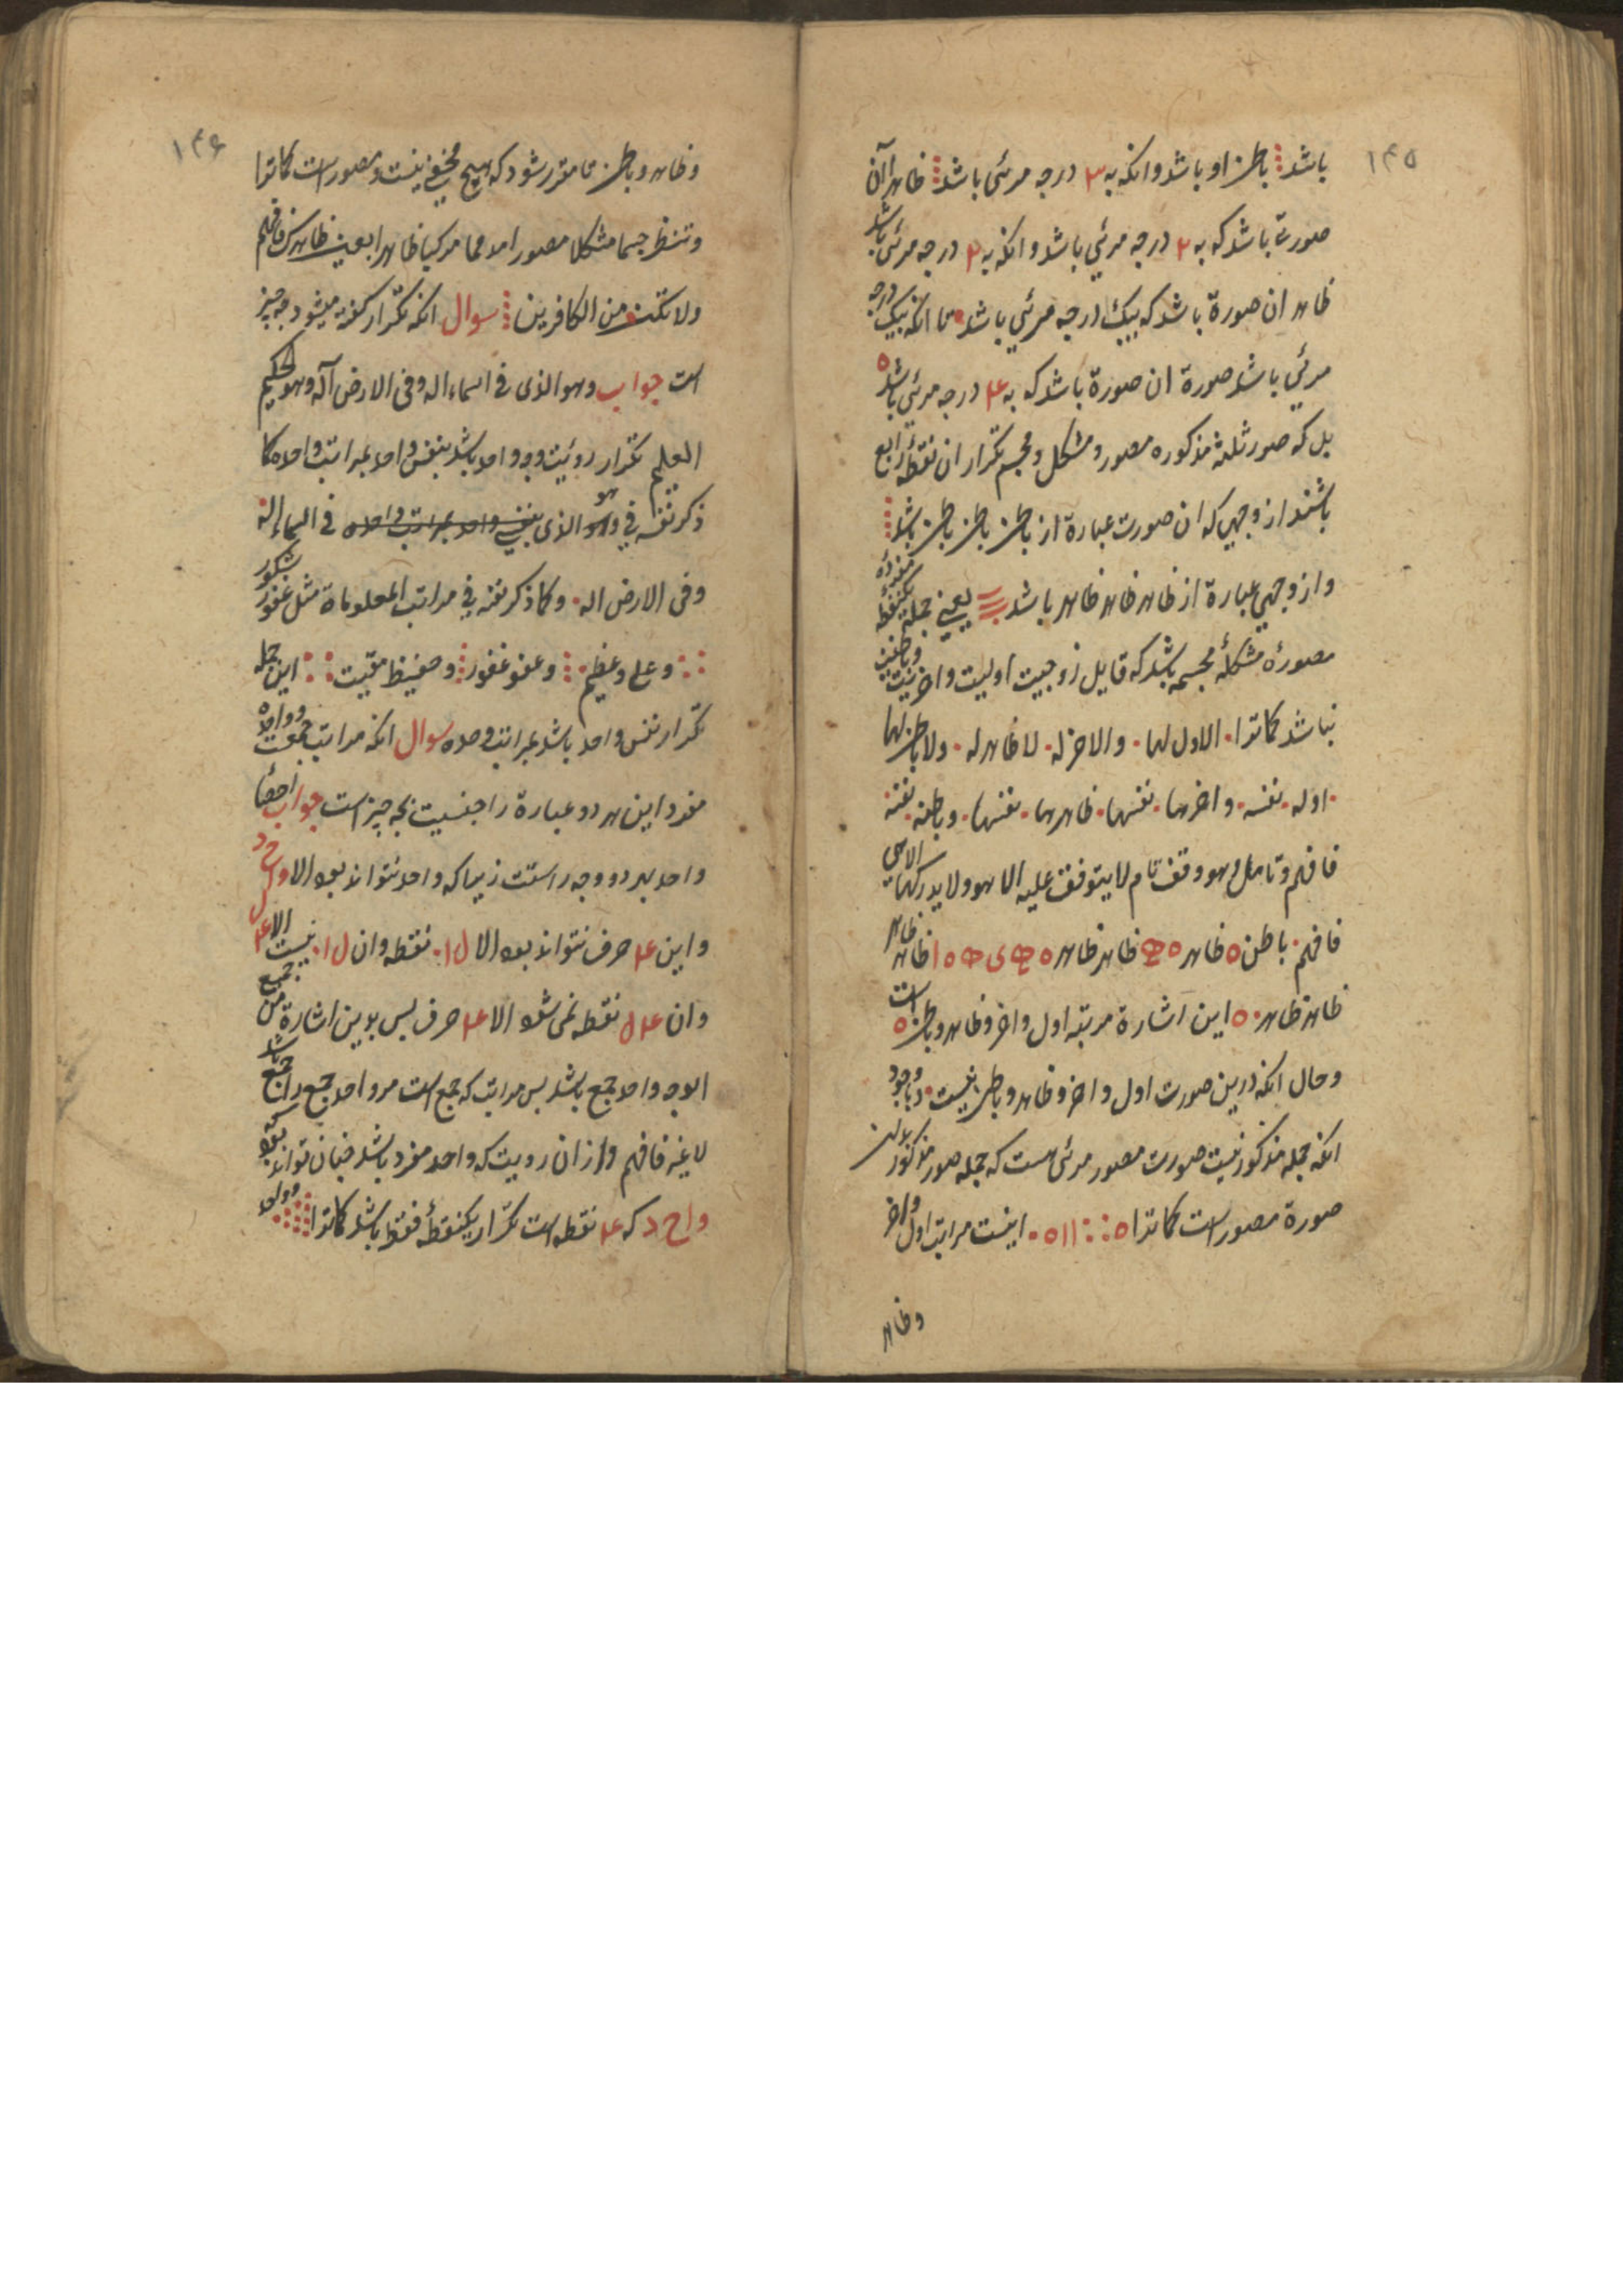 ۱۴۵
باشد باطن او باشد و انکه به ۳ درجه مرئی باشد ظاهر آن
صورت باشد که به ۲ درجه مرئی باشد و انکه به ۲ درجه مرئی باشد
ظاهر ان صورة باشد که بیک درجه مرئی باشد تا انکه بیک درجه
مرئی باشد صورة ان صورة باشد که به ۴ درجه مرئی باشد
بل که صور ثلثه مذکوره مصور و مشکل و مجسم تکرار ان نقطه رابع
باشند از وجهی که ان صورت عبارة از باطن باطن باطن باشد
و از وجهی عبارة از ظاهر ظاهر ظاهر باشد یعنی جمله یکنقطه مفرده
مصورهٔ مشکلهٔ مجسمه باشد که قابل زوجیت اولیت و اخریت
نباشد کماترا الاول لها والاخر له لا ظاهر له ولا باطن لها
اوله نفسه و اخرها نفسها ظاهرها نفسها و باطنه نفسه
فافهم و تامل و هو وقف تام لا یتوقف علیه الا هو ولا یدرکها الا هی
فافهم باطن ه ظاهر ه ظاهر ظاهر ه ظاهر ظاهر
ظاهر ظاهر ه این اشارة مرتبه اول و اخر و ظاهر و باطن است
و حال انکه درین صورت اول و اخر و ظاهر و باطن نیست و با وجود
انکه جمله مذکور نیست صورت مصور مرئی هست که جمله صور مذکور بدان
صورة مصور است کماترا ه ∷ ۱۱ ه اینست مراتب اول و اخر
و ظاهر
۱۴۶
و ظاهر و باطن تا مقرر شود که هیچ مخفی نیست و مصور است کماترا
و تنظر جسما مشکلا مصورا مرکبا ظاهرا بعین ظاهرک فافهم
ولا تکن من الکافرین سوال انکه تکرار کفته میشود چه چیز
است جواب وهو الذی فی السماء اله وفی الارض اله وهو الحکیم
العلیم تکرار رؤیت وجه واحد باشد بنفس واحد بمراتب واحده کما
ذکر نفسه فی وهو الذی بنفس واحد بمراتب واحده فی السماء اله
وفی الارض اله وکما ذکر نفسه فی مراتب المعلوماة مثل غفور شکور
و علی و عظیم و عفو غفور و حفیظ مقیت این جمله
تکرار نفس واحد باشد بمراتب وحده سوال انکه مراتب جمعست و واحده
مفرد این هر دو عبارة را جنسیت بچه چیز است جواب احصا
واحد بهر دو وجه راستت زیرا که واحد نتواند بود الا و ا ح د
و این ۴ حرف نتواند بود الا ۱۰ نقطه و ان ۱۰ نیست الا ۴
و ان ۴ نقطه نمی شود الا ۴ حرف پس بدین اشارة من جمیع
الوجه واحد جمع باشد پس مراتب که جمع است مر واحد جمع را جمع باشد
لا غیر فافهم و از ان رویت که واحد مفرد باشد چنان تواند بود که
و ا ح د که ۴ نقطه است تکرار یکنقطهٔ فقط باشد کماترا